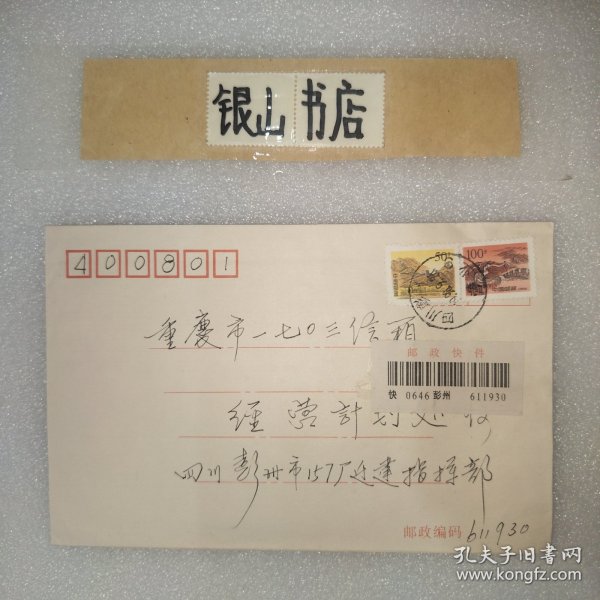 银山书店
400801
50分
100分
四川
重庆市一七〇三信箱
邮政快件
快 0646 彭州 611930
经营计划处 收
四川彭州市157厂迁建指挥部
邮政编码 611930
孔夫子旧书网
www.kongfz.com